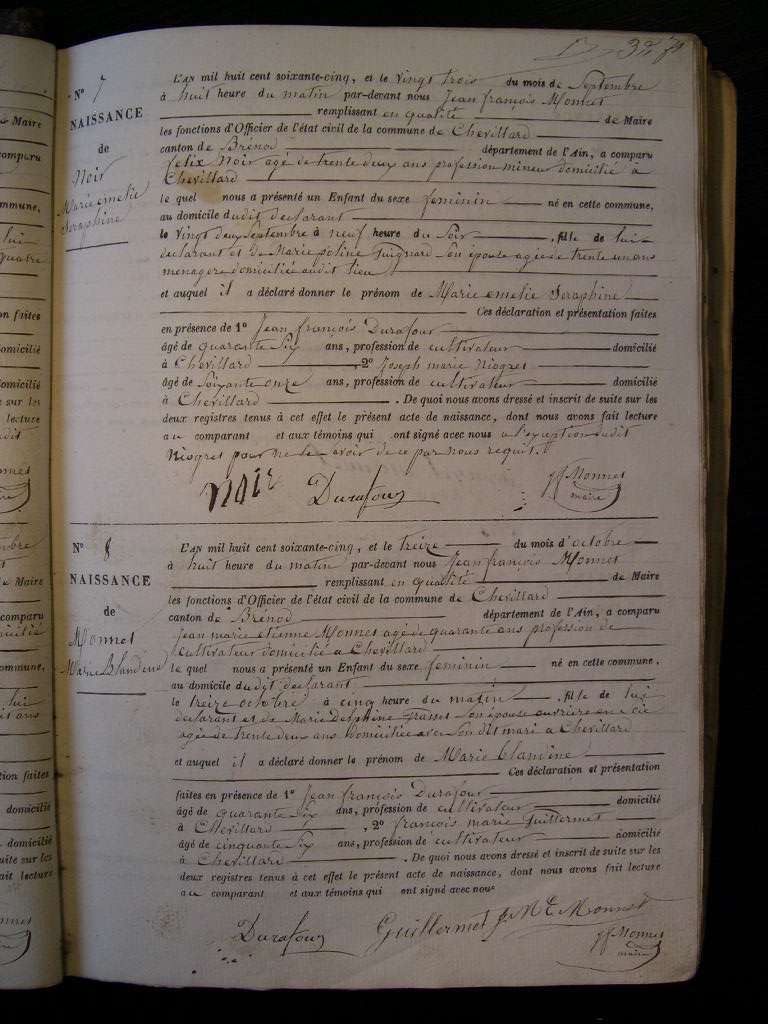 32
N° 7
NAISSANCE
de
Noir
Marie emelie
Seraphine
L'AN mil huit cent soixante-cinq, et le vingt trois du mois de Septembre
à huit heure du matin par-devant nous Jean françois Monnet
remplissant en qualité de Maire
les fonctions d'Officier de l'état civil de la commune de Chevillard
canton de Brénod département de l'Ain, a comparu
felix Noir agé de trente deux ans profession mineur domicilié à
Chevillard
le quel nous a présenté un Enfant du sexe feminin né en cette commune,
au domicile dudit declarant
le vingt deux Septembre à neuf heure du Soir, fille de lui
declarant et de Marie poline Guignard Son épouse agée de trente un ans
menagere domiciliée audit lieu
et auquel il a déclaré donner le prénom de Marie emelie Seraphine
Ces déclaration et présentation faites
en présence de 1° Jean françois Durafour
âgé de quarante Six ans, profession de cultivateur domicilié
à Chevillard, 2° Joseph marie Niogres
âgé de Soixante onze ans, profession de cultivateur domicilié
à Chevillard. De quoi nous avons dressé et inscrit de suite sur les
deux registres tenus à cet effet le présent acte de naissance, dont nous avons fait lecture
au comparant et aux témoins qui ont signé avec nous a l'exception dudit
Niogres pour ne le savoir de ce par nous requit.
Noir Durafour Jf Monnet
maire
N° 8
NAISSANCE
de
Monnet
Marie Blandine
L'AN mil huit cent soixante-cinq, et le treize du mois d'octobre
à huit heure du matin par-devant nous Jean françois Monnet
remplissant en qualité de Maire
les fonctions d'Officier de l'état civil de la commune de Chevillard
canton de Brénod département de l'Ain, a comparu
Jean marie etienne Monnet agé de quarante ans profession de
cultivateur domicilié a Chevillard
le quel nous a présenté un Enfant du sexe feminin né en cette commune,
au domicile dudit declarant
le treize octobre à cinq heure du matin, fille de lui
declarant et de Marie Delphine Son épouse ouvriere en
agée de trente deux ans domiciliée avec Son dit mari a Chevillard
et auquel il a déclaré donner le prénom de Marie blandine
Ces déclaration et présentation
faites en présence de 1° Jean françois Durafour
âgé de quarante Six ans, profession de cultivateur domicilié
à Chevillard, 2° françois marie Guillermet
âgé de cinquante Six ans, profession de cultivateur domicilié
à Chevillard. De quoi nous avons dressé et inscrit de suite sur les
deux registres tenus à cet effet le présent acte de naissance, dont nous avons fait lecture
au comparant et aux témoins qui ont signé avec nous
Durafour Guillermet J. M E Monnet
Jf Monnet
maire